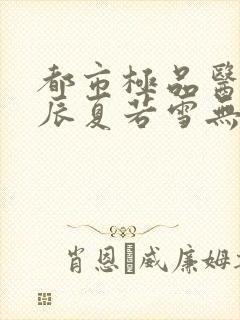 都市極品醫
辰夏若雪無
肖恩·威廉姆